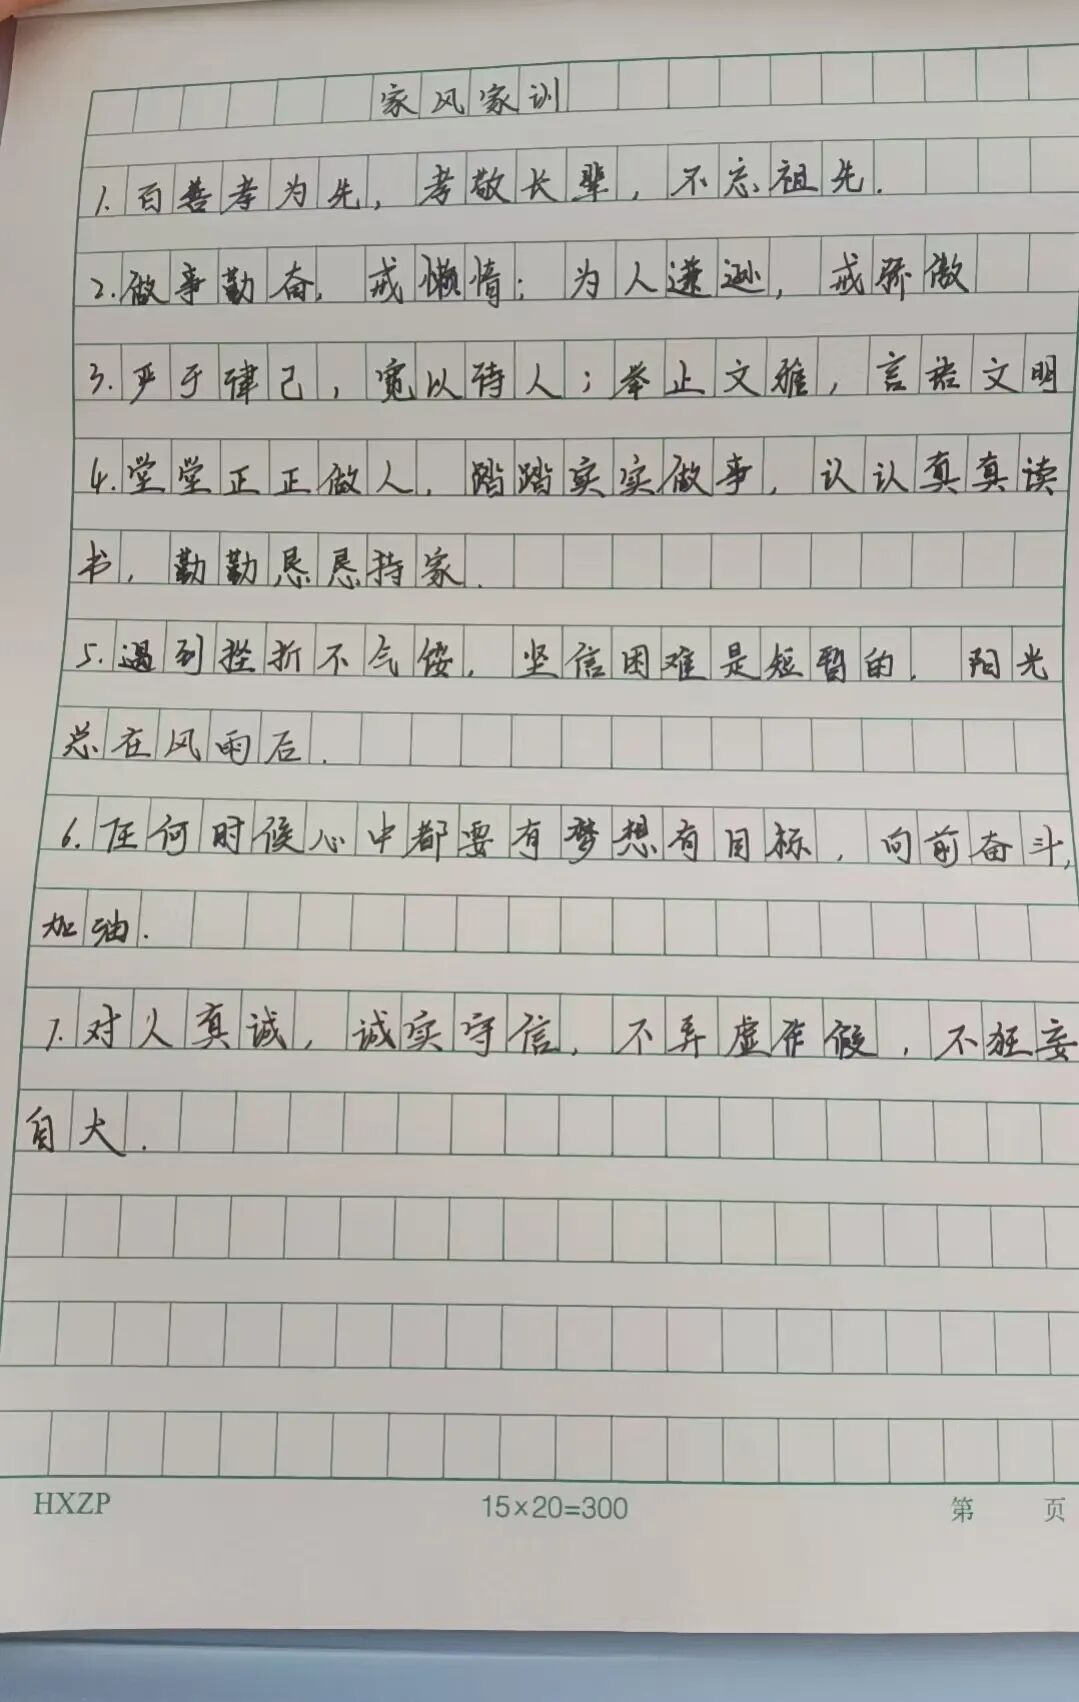 家风家训
1.百善孝为先,孝敬长辈,不忘祖先.
2.做事勤奋,戒懒惰;为人谦逊,戒骄傲
3.严于律己,宽以待人;举止文雅,言语文明
4.堂堂正正做人,踏踏实实做事,认认真真读
书,勤勤恳恳持家.
5.遇到挫折不气馁,坚信困难是短暂的,阳光
总在风雨后.
6.任何时候心中都要有梦想有目标,向前奋斗,
加油.
7.对人真诚,诚实守信,不弄虚作假,不狂妄
自大.
HXZP 15×20=300 第 页